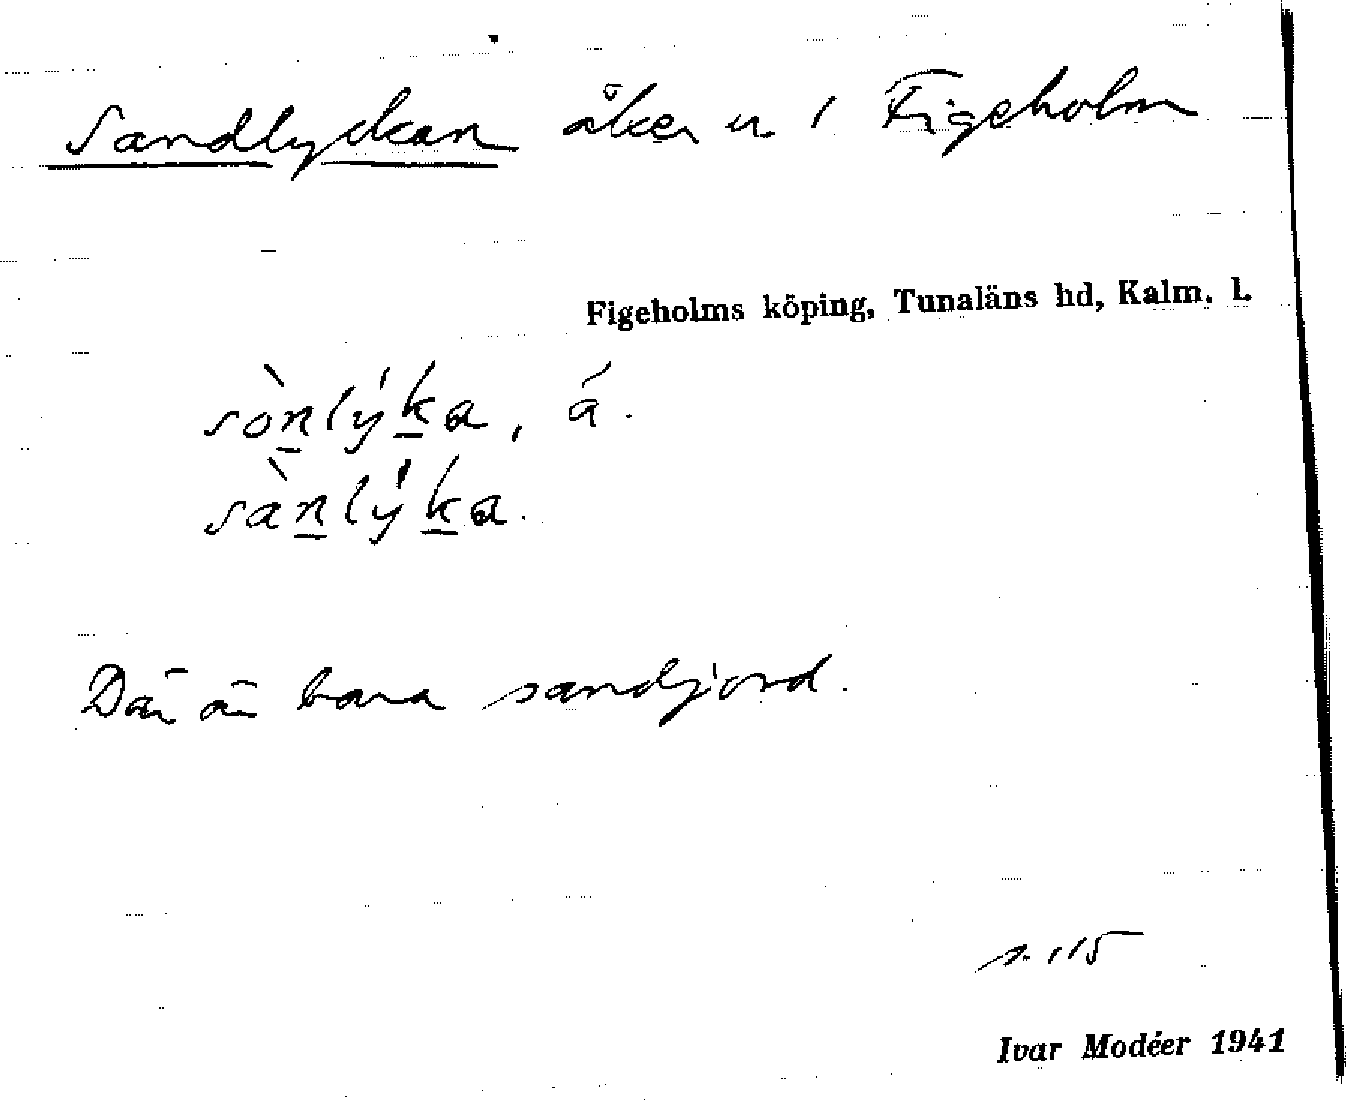 Sandlyckan åker u 1 Figeholm
Figeholms köping, Tunaläns hd, Kalm. l.
sònlýka, á.
sànlýka.
Där är bara sandjord.
s. 115
Ivar Modéer 1941